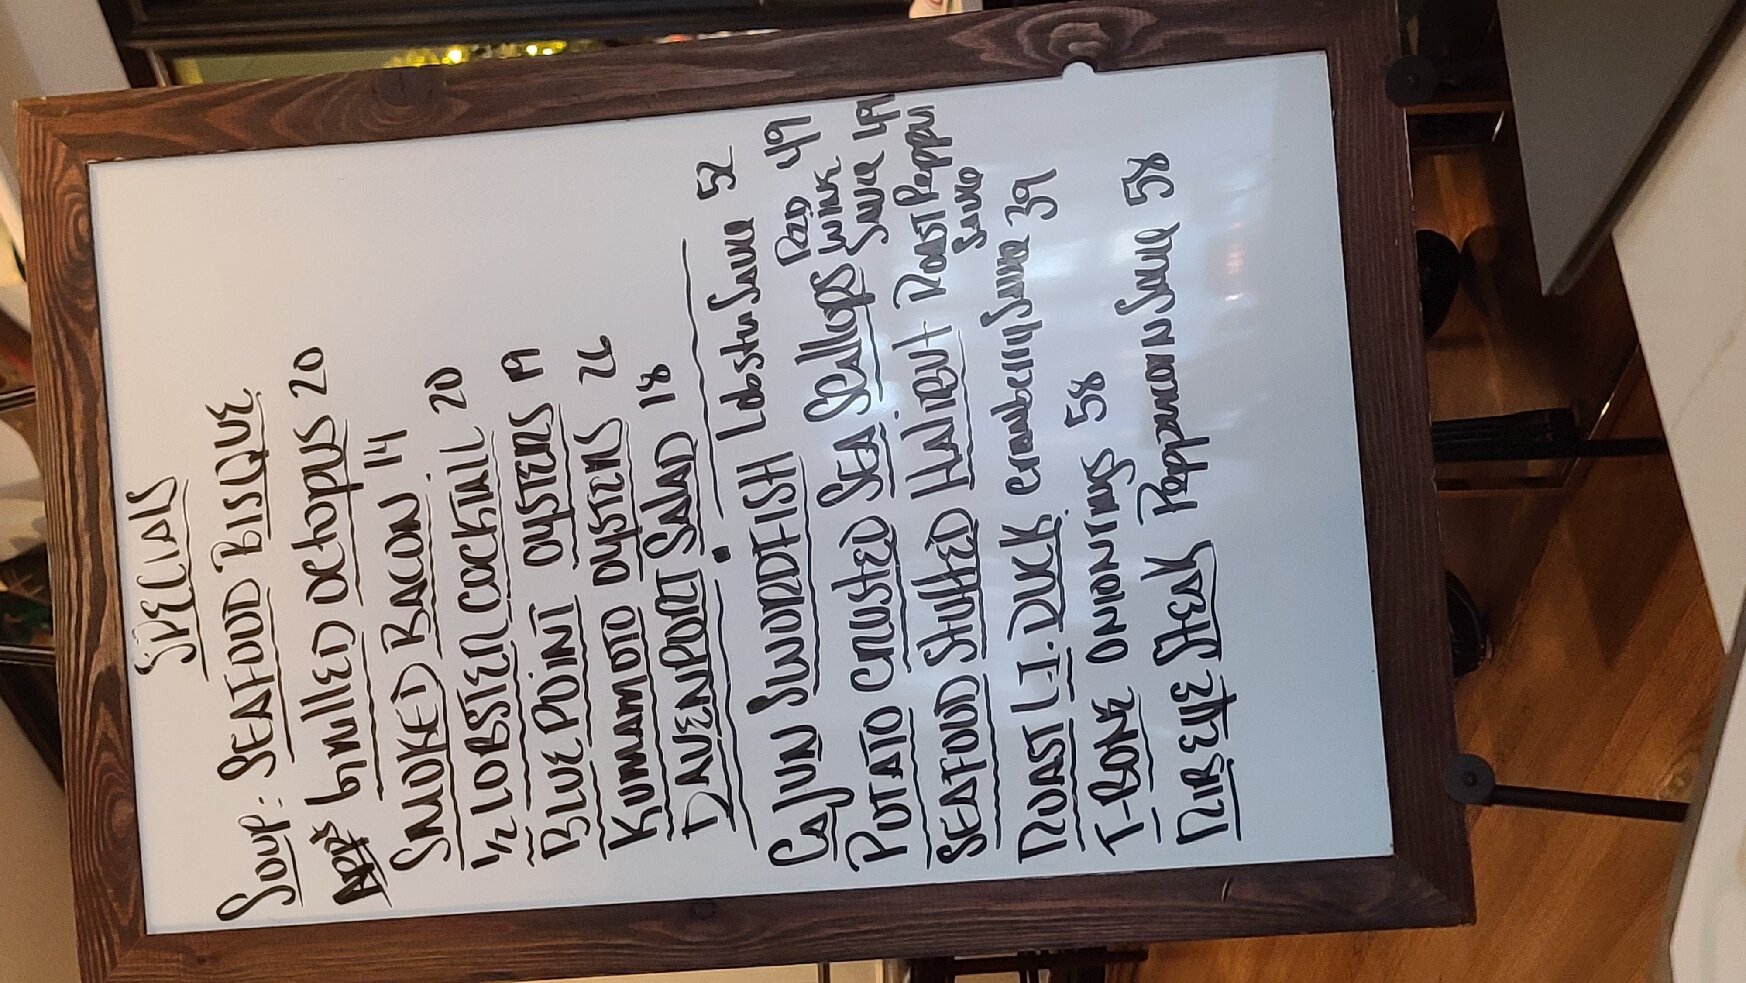 SPECIALS
Soup: SEAFOOD BISQUE
App's Grilled Octopus 20
SMOKED BACON 14
1/2 LOBSTER COCKTAIL 20
BLUE POINT OYSTERS 19
KUMAMOTO OYSTERS 26
DAVENPORT SALAD 18
CAJUN SWORDFISH Lobster Sauce 52
POTATO CRUSTED SEA SCALLOPS RED WINE Sauce 49
SEAFOOD Stuffed HALIBUT Roast Pepper Sauce 49
ROAST L.I. DUCK Cranberry Sauce 39
T-BONE ONION RINGS 58
RIB EYE STEAK Peppercorn Sauce 58